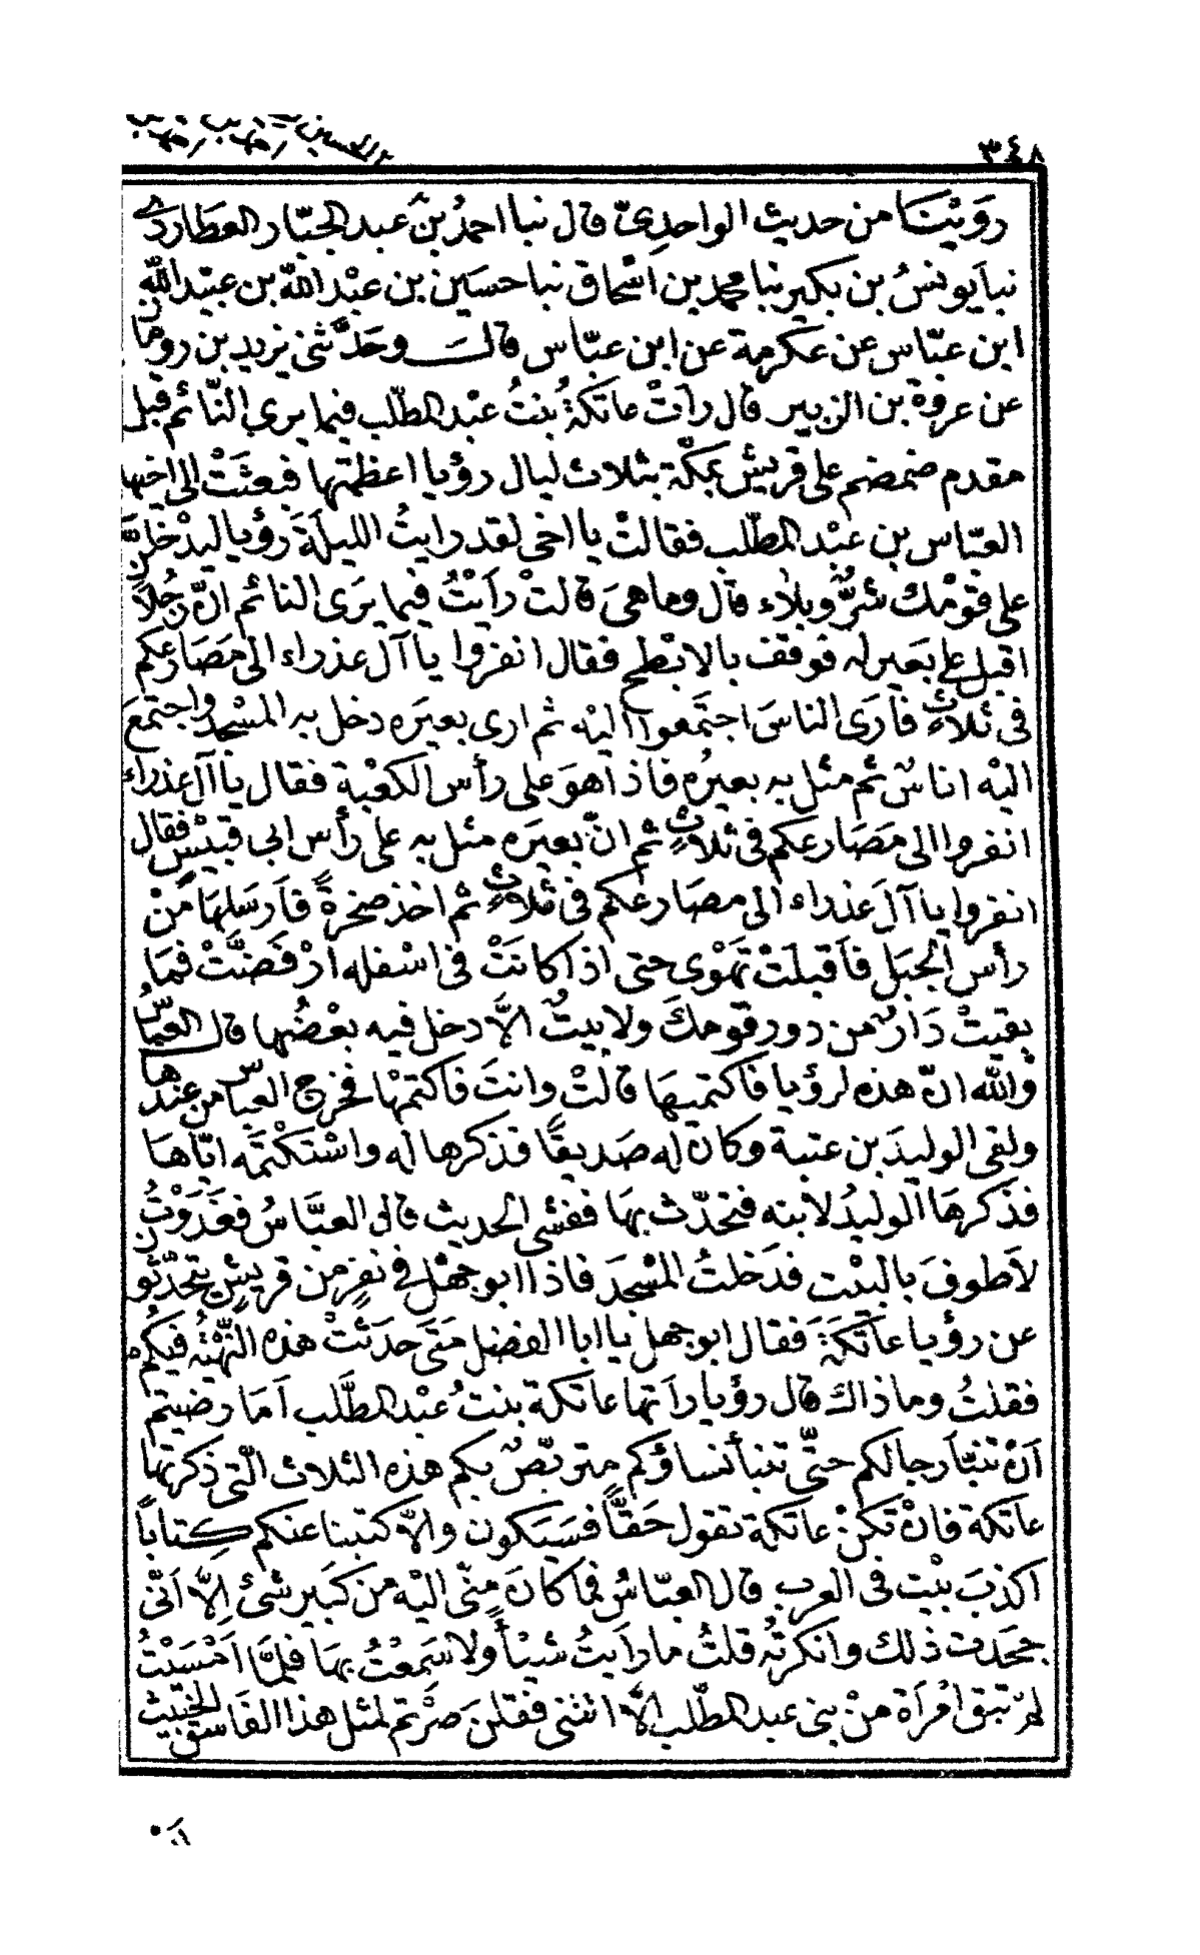 ٣٤٨
روَيْنَا من حديث الواحديّ قال نبا احمدُ بنُ عبد الجبّار العطاردي
نبا يونسُ بن بكير نبا محمد بن اسْحاق نبا حسَين بن عبْد اللّه بن عبيْد اللّه
ابن عبّاس عن عكرمة عن ابن عبّاس قالَ وحَدَّثنى يزيد بن رومان
عن عروة بن الزبير قال رأتْ عاتكةُ بنتُ عبْد المطّلب فيما يرى النّائم قبل
مقدم ضمضم على قريش بمكّة بثلاث ليال رؤيا اعظمتها فبعثَتْ الى اخيها
العبّاس بن عبْد المطّلب فقالتْ يا اخى لقد رايتُ الليلَةَ رؤيا ليدْخلنَّ
على قوْمك شرٌّ وبلاء قال وما هىَ قالتْ رأيْتُ فيما يرَى النائم انّ رجُلاً
اقبل على بَعير له فوقف بالابْطح فقال انفروا يا آل عذراء الى مَصَارعكم
فى ثلاثٍ فأرَى الناسَ اجتَمعوا اليْه ثم ارى بعيرَه دخل به المسْجد واجتمعَ
اليْه اناسٌ ثم مثل به بعيرُه فاذا هوَ على رأس الكعْبة فقال يا آل عذراء
انفروا الى مَصَارعكم فى ثلاثٍ ثم انّ بعيرَه مثل به على رأس ابى قبيْس فقال
انفروا يا آلَ عذراء الى مصَارعكم فى ثلاثٍ ثم اخذ صخرةً فأرسَلهَا منْ
رأس الجَبَل فأقبلَتْ تهْوى حتى اذا كانَتْ فى اسْفله ارْفضَّتْ فمَا
بقيتْ دَارٌ من دور قومكَ ولا بيتٌ الاَّ دخل فيه بعْضُها قال العبّاسُ
واللّه انّ هذه لرؤيا فاكتميهَا قالتْ وانتَ فاكتمْها فخرج العبّاس من عندها
ولقى الوليدَ بن عتبة وكان له صَديقًا فذكرها له واسْتكْتمَه ايّاهَا
فذكرهَا الوليدُ لأبنه فتحدّث بهَا ففشى الحديث قال العبَّاسُ فغَدَوْتُ
لاَطوفَ بالبيْت فدَخلتُ المسْجدَ فاذا ابو جهْل فى نفرٍ من قريشٍ يتحدّثون
عن رؤيا عَاتكَةَ فقال ابو جهل يا ابا الفضل مَتَى حدَثتْ هذه النَّبيَّةُ فيكُمْ
فقلتُ وما ذاك قال رؤيا رأتها عاتكة بنتُ عبْد المطَّلب اَمَا رضيتم
اَنْ تنبّأ رجالكم حتَّى تنبأ نساؤكم متربّصٌ بكم هذه الثلاث الّتى ذكرتها
عاتكة فانْ تكنْ عاتكة تقول حَقًّا فسَيَكون والاّ كتبنا عنكم كتابًا
اكذبَ بيْت فى العرب قال العبّاسُ فما كانَ منّى اليْه من كَبير شئ اِلاَّ اَنّى
جحَدت ذلك وانكرتُه قلتُ ما رأيتُ شيئًا ولا سَمعْتُ بهَا فلمَّا اَمْسَيْتُ
لمْ تبق امْرأة منْ بنى عبد المطّلب الاَّ اتتنى فقلنَ صبرْتم لمثل هذا الفاسق الخبيث